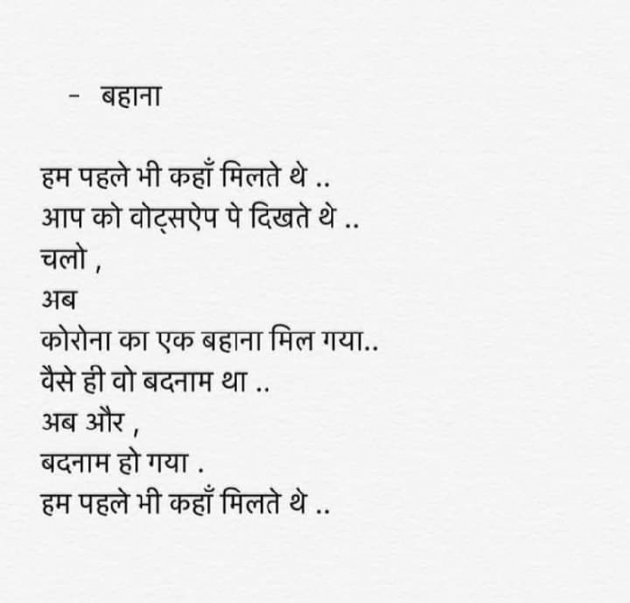 - बहाना
हम पहले भी कहाँ मिलते थे ..
आप को वोट्सऐप पे दिखते थे ..
चलो ,
अब
कोरोना का एक बहाना मिल गया..
वैसे ही वो बदनाम था ..
अब और ,
बदनाम हो गया .
हम पहले भी कहाँ मिलते थे ..